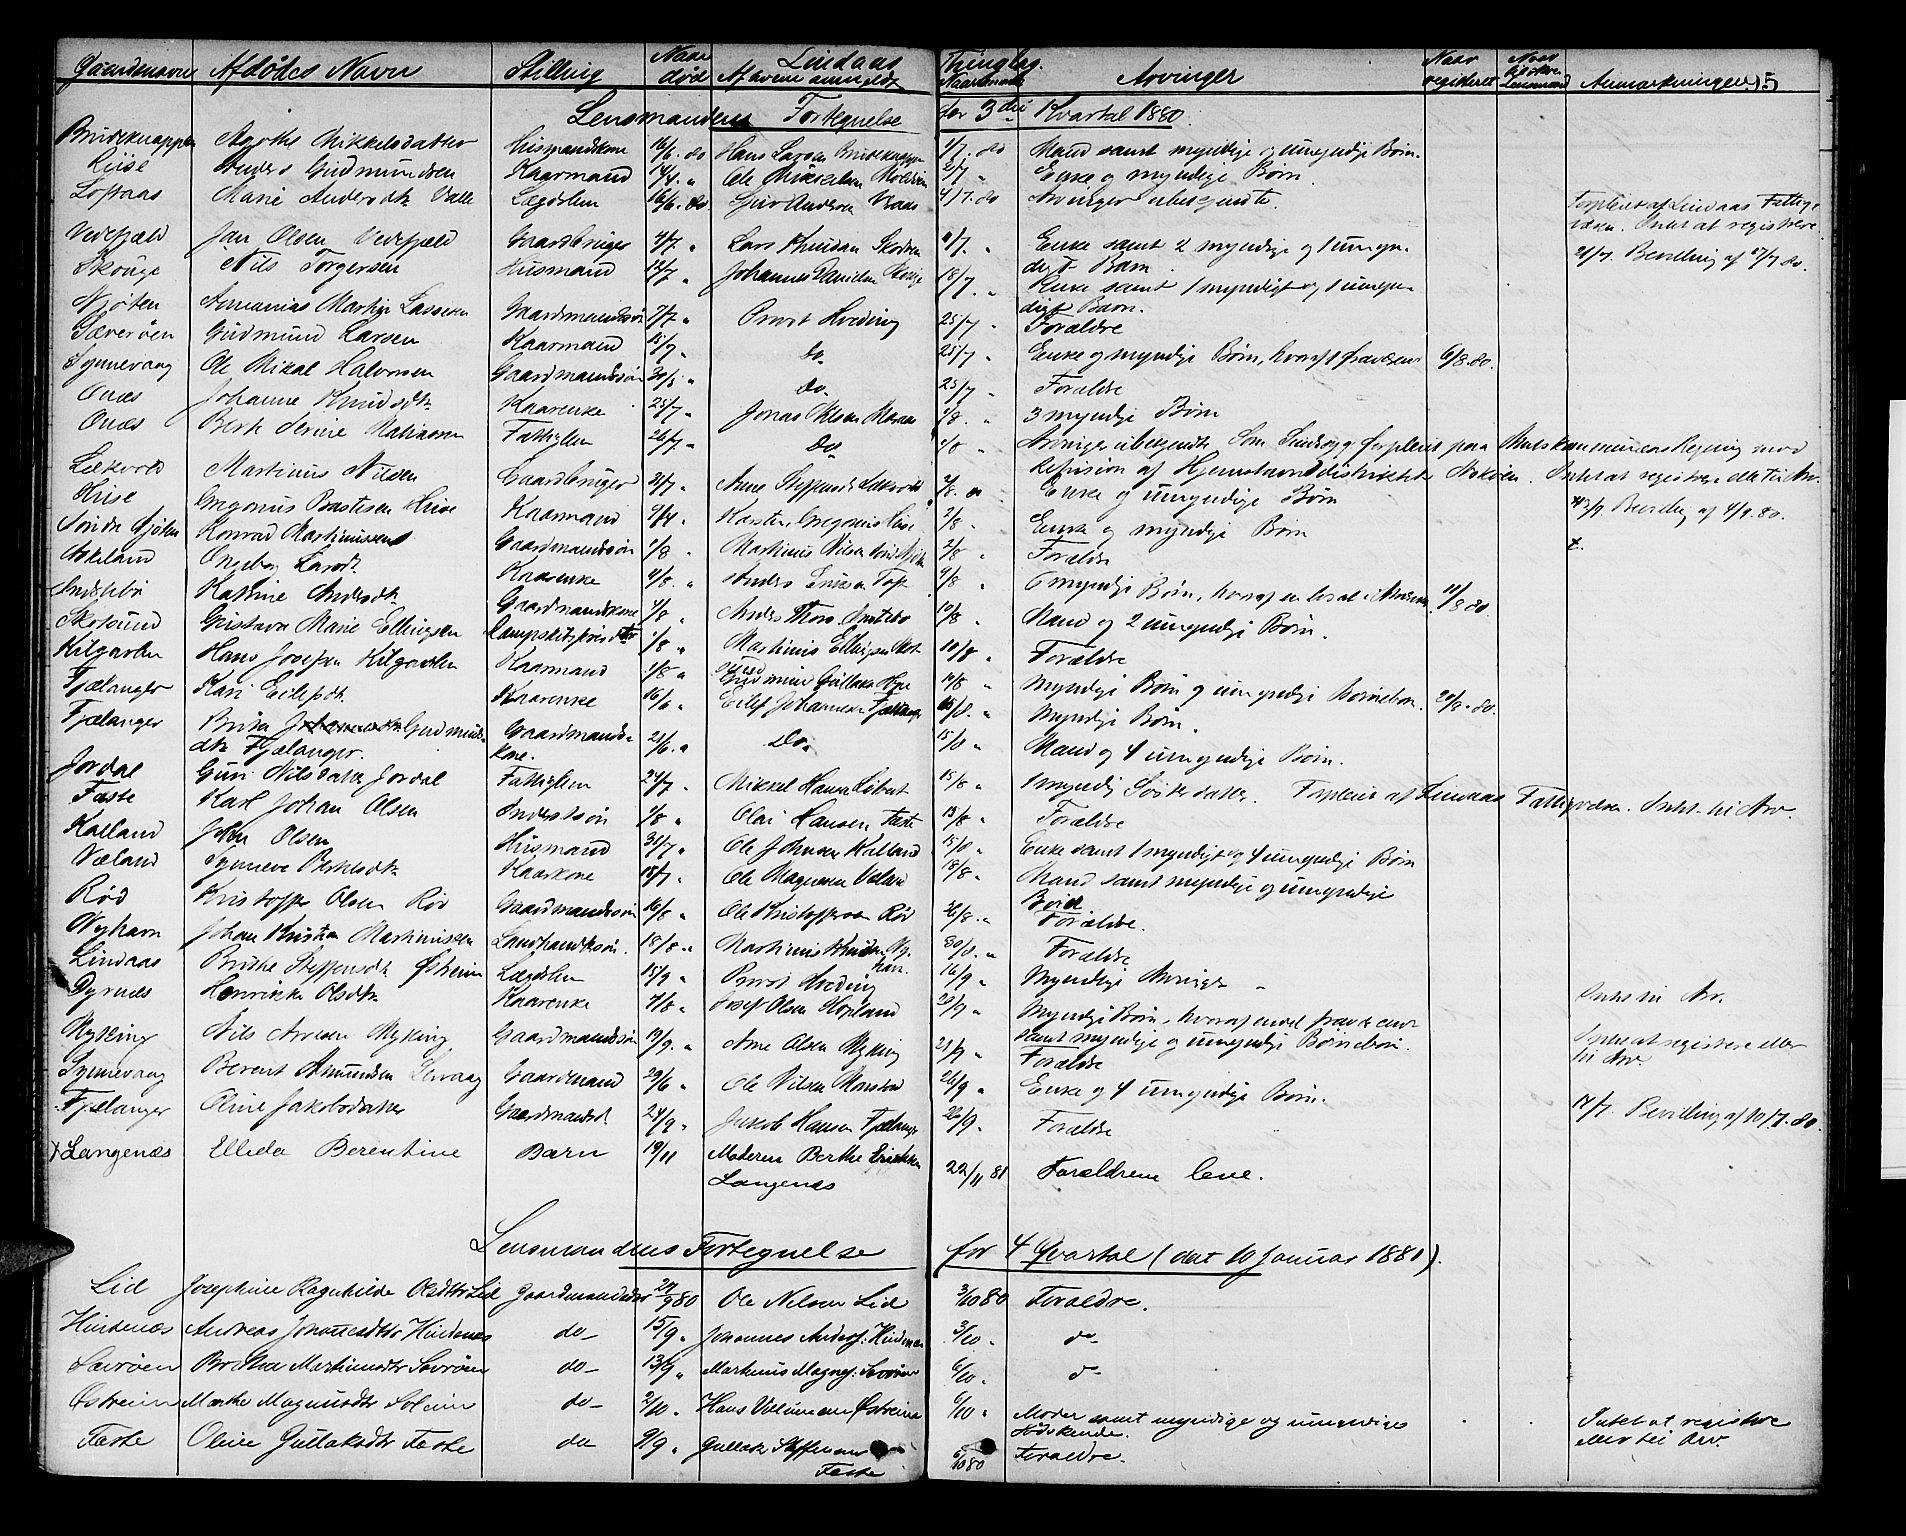 Gaardenavn Afdødes Navn Stilling Naar død Lindaas Af hvem anmeldt Thinglag. Naar anmeldt Arvinger Naar registreret Anmærkninger 95
Lensmandens Fortegnelse for 3die Kvartal 1880.
Brudeknappen Marthe Mikkelsdatter Husmandskone 16/6. 80 Hans Larsen Brudeknappen 1/7. 80 Mand samt myndige og umyndige Børn.
Risé Anders Gudmundsen Kaarmand 14/4. " Ole Mikkelsen 2/7 " Enke og myndige Børn.
Loftaas Marie Andersdtr. Valle Lægdslem 16/6. 80. Sjur Andersen 4/7. 80 Arvinger ubekjendte. Forpleiet af Lindaas Fattig-
væsen. Intet at registrere.
Vedefjeld Jan Olsen Vedefjeld Gaardbruger 4/7. " Lars Knudsen 9/7. " Enke samt 2 myndige og 1 umyn-
digt Barn. 21/7. Bevilling af 17/7 80.
Skouge Nils Torgersen Husmand 12/7 " Johannes Danielsen Skouge 18/7. " Enke samt 1 myndigt og 1 umyn-
digt Barn.
Njøten Ananias Martin Lassesen Gaardmandssøn 7/7 " Provst Hvoding 25/7 " Forældre
Sæverøen Gudmund Larsen Kaarmand 15/7 " do. 25/7 " Enke og myndige Børn, hvoraf fraværende 6/8. 80.
Synnevaag Ole Mikal Halvorsen Gaardmandssøn 30/5 " do. 25/7 " Forældre
Onæs Johanne Knudsdtr. Kaarenke 25/7. " Jonas Nilsen 1/8. " 3 myndige Børn
Onæs Berte Serine Fattiglem 26/7. " do 1/8 " Arvinger ubekjendte. Som Sindssyg forpleiet paa Amtskommunens Regning mod
Refusion af Hjemstavnsdistriktet. Intet at registrere eller til Arv.
Lekvold Martinus Nilsen Gaardbruger 21/7 " Anne Steffensdtr Lekvold 2/8. 80 Enke og umyndige Børn Bevilling af 4/9. 80.
Huse Gregorius Bastesen Huse Kaarmand 9/4. " Karsten Gregoriusen Huse 2/8 " Enke og myndige Børn
Søndre Mjelen Konrad Martinussen Gaardmandssøn 1/8 " Martinus Nilsen 2/8 " Forældre
Askeland Ingeborg Larsdtr. Kaarenke 4/8. " Anders Eriksen 9/8 " 6 myndige Børn, hvoraf en bosat i Amerika. 11/8 80.
Andsbø Katrine Andersdtr. Gaardmandskone 4/8 " Anders Thors. 10/8 " Mand og 2 umyndige Børn.
Skotsund Gustava Marie Ellingsen 1/8 " Martinus Ellingsen Skot-
sund 10/8 " Forældre
Kilgarden Hans Josefsen Kilgarden Kaarmand 1/8 " Gudmund Gullaksen 14/8 " Myndige Børn og umyndige Børnebørn. 20/8. 80.
Fjælanger Kari Eilefsdtr. Kaarenke 16/6 " Eilef Johannesen Fjælanger 15/8. " Myndige Børn.
Fjælanger Brita Gudmunds-
dtr. Fjælanger. Gaardmands-
kone. 21/6. " do. 15/8 " Mand og 4 umyndige Børn.
Jordal Guri Nilsdatter Jordal Fattiglem 24/7. " Mikkel Hansen 15/8 " 1 myndig Søsterdatter. Forpleiet af Lindaas Fattigvæsen. Intet til Arv.
Faste Karl Johan Olsen Inderstsøn 1/8 " Olai Hansen Faste 15/8 " Forældre
Kalland John Olsen Husmand 31/7 " Ole Johnsen Kalland 15/8 " Enke samt 1 myndigt og 4 umyndige Børn
Væland Synneve Kaarkone 18/7 . Ole Magnesen Væland 18/8 " Mand samt myndige og umyndige
Børn
Rød Kristoffer Olsen Rød Gaardmandssøn 16/8 " Ole Kristoffersen Rød 26/8. " Forældre.
Nyhavn Johan Kristian Martinussen Landhandlersøn. 18/8. " Martinus Knudsen Ny-
havn. 30/8. " Forældre
Lindaas Brithe Steffensdtr. Østreim Lægdslem 15/9 " Provst Hvoding 16/9 " Myndige Arvinger
Dyrnæs Henrikke Olsdtr. Kaarenke 7/8 " Josef Olsen Hopland 20/9 " Myndige Børn, hvoraf endel fraværende
samt myndige og umyndige Børnebørn. Intet til Arv.
Myking Nils Arnesen Myking Gaardmandssøn 19/9. " Arne Olsen Myking 21/9 " Forældre Intet at registrere eller
til Arv.
Synnevaag Berent Amundsen Gaardmand 29/6 " Ole Nilsen 26/9 " Enke og 4 umyndige Børn. 17/7. Bevilling af 10/7. 80.
Fjælanger Oline Jakobsdatter Gaardmandsdt 24/9 " Jakob Hansen Fjælanger 26/9. " Forældre
Langenæs Elleda Berentine Barn 19/11 Moderen Berthe
Langenæs 22/11 81 Forældrene leve.
Lensmandens Fortegnelse for 4 Qvartal (dat 10 Januar 1881).
Lid Josephine Ragnhilde Olsdtr Lid Gaardmandsdtr 20/9 80 Ole Nilsen Lid 3/10 80 Forældre.
Hindenæs Andreas Johannesdtr Hindenæs do 15/9 " Johannes Anders. Hindenæs 3/10 " do
Sævrøen Brithe Martinusdtr Sævrøen do 13/9 " Martinus Magnes. Sævrøen 6/10 " do
Østreim Marthe Magnusdtr Soleim do 2/10 " Hans Østreim 6/10 " Moder samt myndige og umyndige
Sødskende. Intet at registrere
eller til Arv.
Faste Oline Gullaksdtr Faste do 9/9 " Gullak Steffensen
Faste 6/10 80 Forældre.